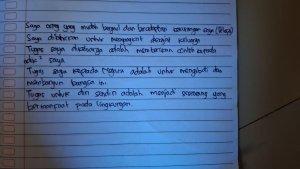 Saya orang yang mudah bergaul dan beradaptasi
Saya dilahirkan untuk mengangkat derajat keluarga
Tugas saya dikeluarga adalah memberikan contoh kepada
adik" saya
Tugas saya kepada Negara adalah untuk mengabdi dan
Membangun bangsa ini.
Tugas untuk diri sendiri adalah menjadi seseorang yang
bermanfaat pada lingkungan.